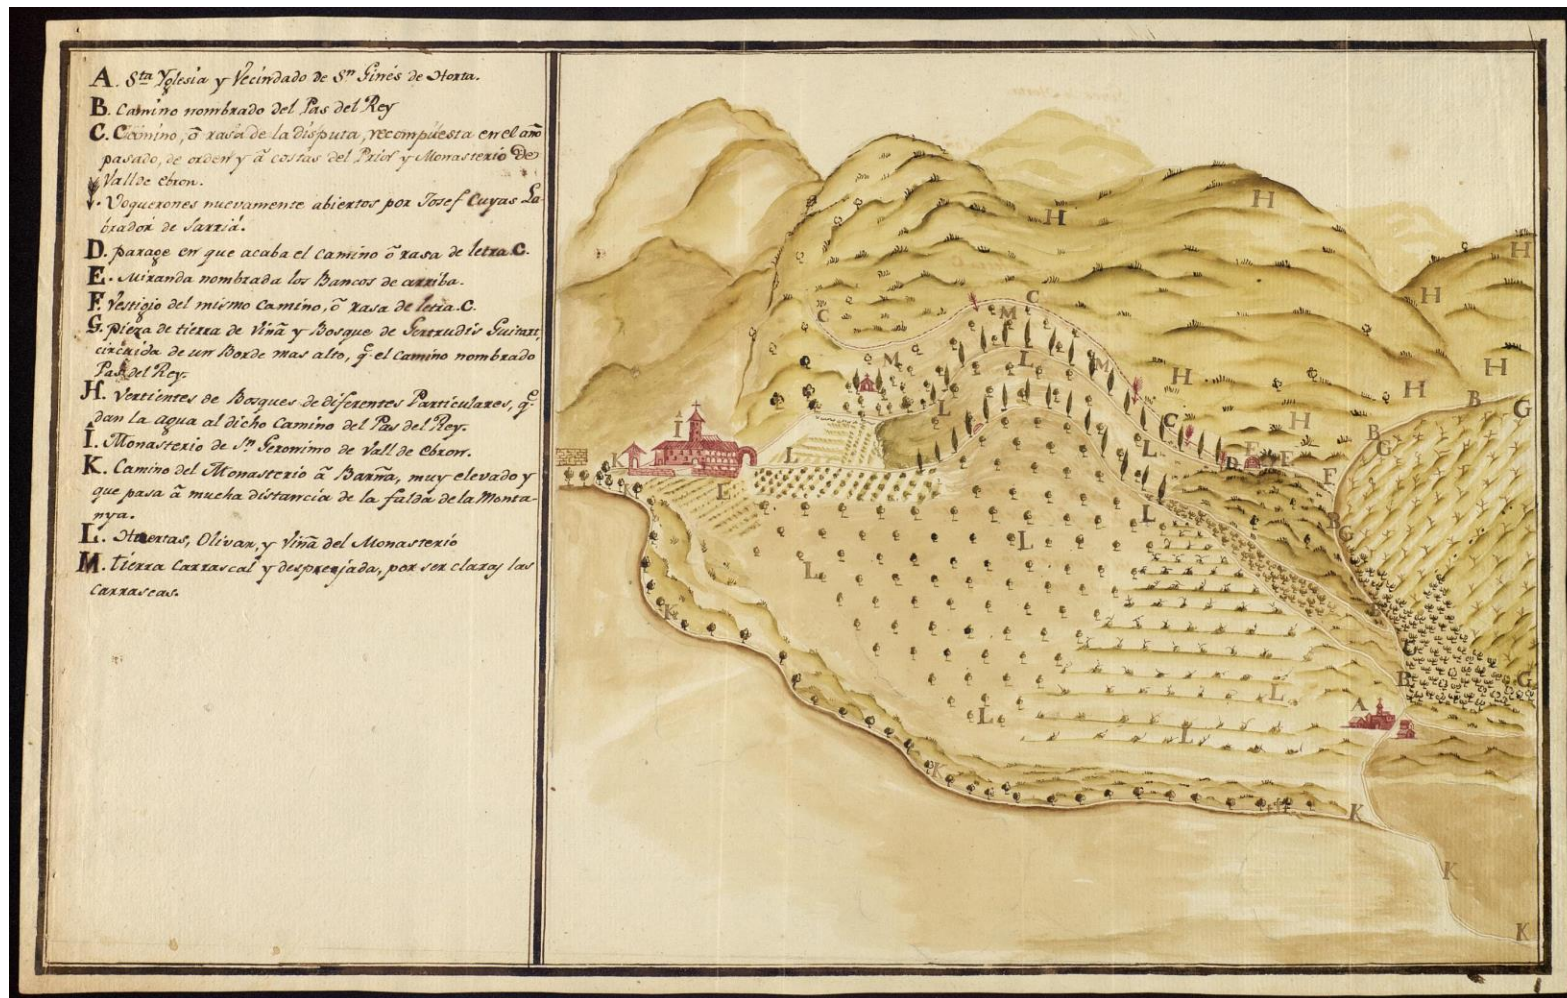 A. Sta Yglesia y Vecindado de Sn Ginés de Horta.
B. Camino nombrado del Pas del Rey
C. Camino, ô rasa de la disputa, recompuesta en el año
pasado, de orden y â costas del Prior y Monasterio De
Vall de ebron.
Voquerones nuevamente abiertos por Josef Cuyas La-
brador de Sarriá.
D. parage en que acaba el camino ô rasa de letra C.
E. Miranda nombrada los Bancos de arriba.
F. Vestigio del mismo Camino, ô rasa de letra C.
G. pieza de tierra de Viña y Bosque de Gertrudis Guitart,
circuida de un Borde mas alto, qe el Camino nombrado
Pas del Rey.
H. Vertientes de Bosques de diferentes Particulares, qe
dan la agua al dicho Camino del Pas del Rey.
I. Monasterio de Sn Geronimo de Vall de ebron.
K. Camino del Monasterio â Barña, muy elevado y
que pasa â mucha distancia de la falda de la Monta-
nya.
L. Huertas, Olivar, y Viña del Monasterio
M. tierra Carrascal y desprenjada, por ser claras las
carrascas.
H
H
H
C
C
M
H
M
L
M
H
H
H
L
C
H
B
G
I
L
L
B
G
K
D
E
E
F
L
L
B
G
L
L
K
B
C
B
G
L
L
A
L
K
K
K
K